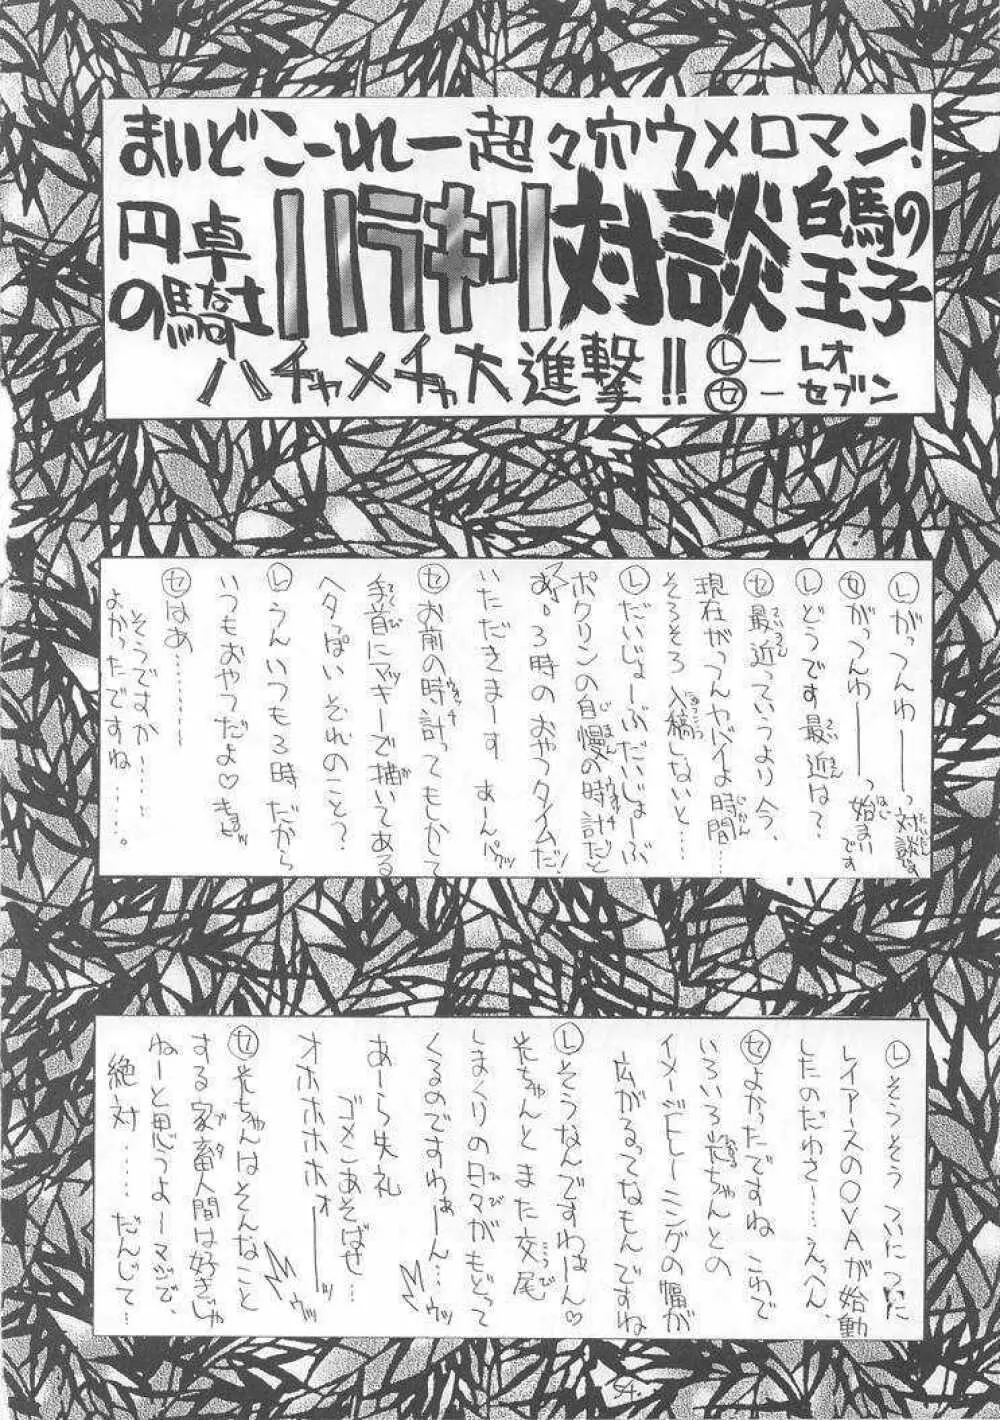 まいどこーれー超々穴ウメロマン!
円卓の騎士
ハラキリ対談
白馬の王子
ハチャメチャ大進撃!!
㋹ー レオ
㋝ー セブン
㋹がってんわーーっ対談す
㋝がってんわーーっ始まいです
㋹どうです最近は?
㋝最近っていうより今、
現在がってんヤバイよ時間…
そろそろ入稿しないと…
㋹だいじょーぶだいじょーぶ
ボクリンの自慢の時計だと
あ、3時のおやつタイムだ!
いただきまーす あーんパクッ
㋝お前の時計ってもかして
手首にマッキーで描いてある
ヘタっぱいそれのこと?
㋹うんいつも3時だから
いつもおやつだよ♡
㋝はあ………
そうですか……
よかったですね……。
㋹そうそう ついについに
レイアースのOVAが始動
したのだわさ…えっへん
㋝よかったですね これで
いろいろ光ちゃんとの
イメージトレーニングの幅が
広がるってなもんですね
㋹そうなんですわぁーん♡
光ちゃんとまた交尾
しまくりの日々がもどって
くるのですわぁーん…ウッ
あーら失礼
ゴメンあそばせ…
オホホホホォーーッ
㋝光ちゃんはそんなこと
する家畜人間は好きじゃ
ねーと思うよーマジで、
絶対……だんじて…